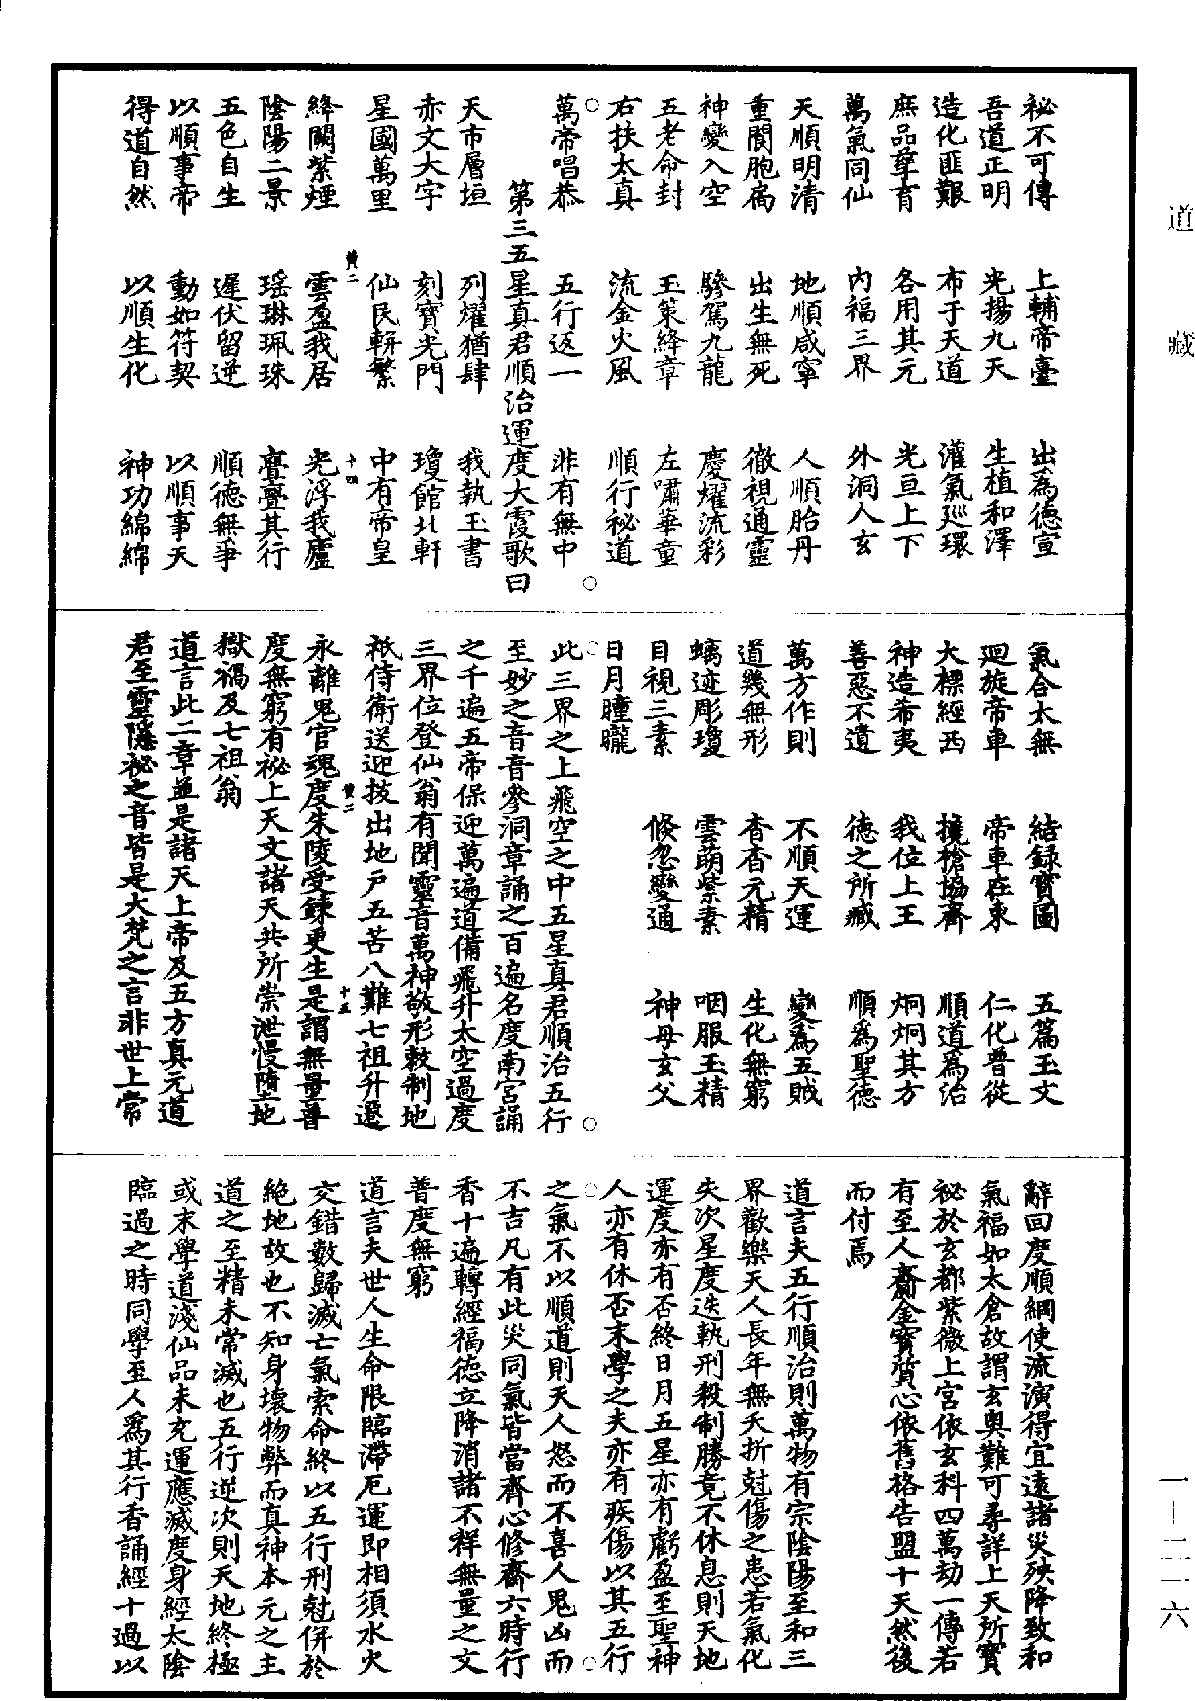 秘不可傳　上輔帝臺　出為德宣
吾道正明　光揚九天　生植和澤
造化匪艱　布于天道　灌氣巡環
庶品羣育　各用其元　光亘上下
萬氣同仙　內福三界　外洞入玄
天順明清　地順咸寧　人順胎丹
重閬胞扃　出生無死　徹視通靈
神變入空　驂駕九龍　慶燿流彩
五老命封　玉策絳章　左嘯華童
右扶太真　流金火風　順行秘道
○萬帝唱恭　五行返一　非有無中○
第三五星真君順治運度大霞歌曰
天市層垣　列燿猶肆　我執玉書
赤文大字　刻寶光門　瓊館北軒
星國萬里　仙民輧繁　中有帝皇
黃二　十四
絳闕紫煙　雲盈我居　光浮我廬
陰陽二景　瑶琳珮珠　亹亹其行
五色自生　遲伏留逆　順德無爭
以順事帝　動如符契　以順事天
得道自然　以順生化　神功綿綿
氣合太無　結録寶圖　五篇玉文
迴旋帝車　帝車在東　仁化普從
大標經西　攙槍協齊　順道為治
神造希夷　我位上王　炯炯其方
善惡不遺　德之所臧　順為聖德
萬方作則　不順天運　變為五賊
道幾無形　杳杳元精　生化無窮
螭迹彫瓊　雲萌紫素　咽服玉精
目視三素　倏忽變通　神母玄父
日月曈曨
○此三界之上飛空之中五星真君順治五行○
至妙之音音參洞章誦之百遍名度南宮誦
之千遍五帝保迎萬遍道備飛升太空過度
三界位登仙翁有聞靈音萬神敬形敕制地
祇侍衛送迎拔出地戶五苦八難七祖升遷
黃二　十五
永離鬼官魂度朱陵受鍊更生是謂無量普
度無窮有祕上天文諸天共所崇泄慢墮地
獄禍及七祖翁
道言此二章並是諸天上帝及五方真元道
君至靈隱祕之音皆是大梵之言非世上常
辭回度順綱使流演得宜遠諸災殃降致和
氣福如太倉故謂玄奧難可尋詳上天所寶
祕於玄都紫微上宮依玄科四萬劫一傳若
有至人齎金寶質心依舊格告盟十天然後
而付焉
道言夫五行順治則萬物有宗陰陽至和三
界歡樂天人長年無夭折尅傷之患若氣化
失次星度迭執刑殺制勝竟不休息則天地
運度亦有否終日月五星亦有虧盈至聖神
人亦有休否末學之夫亦有疾傷以其五行
○之氣不以順道則天人怒而不喜人鬼凶而○
不吉凡有此災同氣皆當齊心修齋六時行
香十遍轉經福德立降消諸不祥無量之文
普度無窮
道言夫世人生命限臨滯厄運即相須水火
交錯數歸滅亡氣索命終以五行刑尅併於
絕地故也不知身壞物弊而真神本元之主
道之至精未常滅也五行逆次則天地終極
或末學道淺仙品未充運應滅度身經太陰
臨過之時同學至人為其行香誦經十過以
道　藏
一—二一六